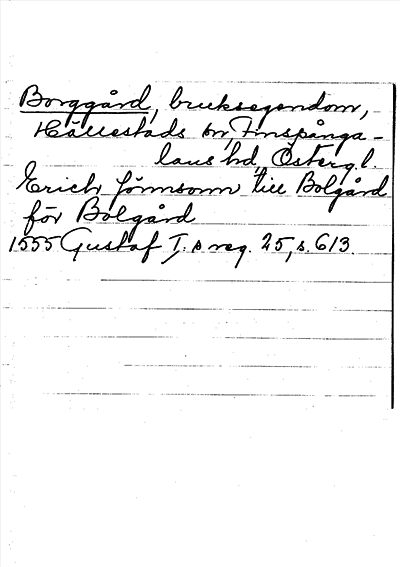 Borggård, bruksegendom,
Hällestads sn, Finspånga-
läns hd, Östergl.
Erich Jönnsonn till Bolgård
för Bolgård
1555 Gustaf I:s reg. 25, s. 613.